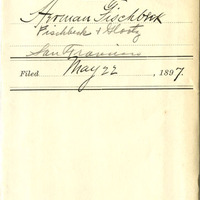 Herman Fischbeck
Fischbeck & Glootz
San Francisco
Filed May 22, 1897.